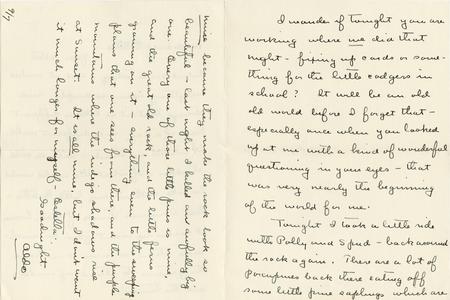 I wonder if tonight you are
working where we did that
night - fixing up cards or some-
thing for the little codgers in
school? It will be an old
old world before I forget that -
especially once when you looked
up at me with a kind of wonderful
questioning in your eyes - that
was very nearly the beginning
of the world for me.
Tonight I took a little ride
with Polly and Spud - back around
the rock again. There are a lot of
Porcupines back there eating off
some little pine saplings which are
mine because they make the rock look so
beautiful - last night I killed an awfully big
one. Every one of those little pines is mine,
and the great old rock, and the little ferns
growing on it - everything even to the sweeping
plains that one sees from there, and the purple
mountains where the indigo shadows rise
at Sunset. It is all mine, but I don't want
it much longer for myself, Estella.
Goodnight
Aldo
9/7